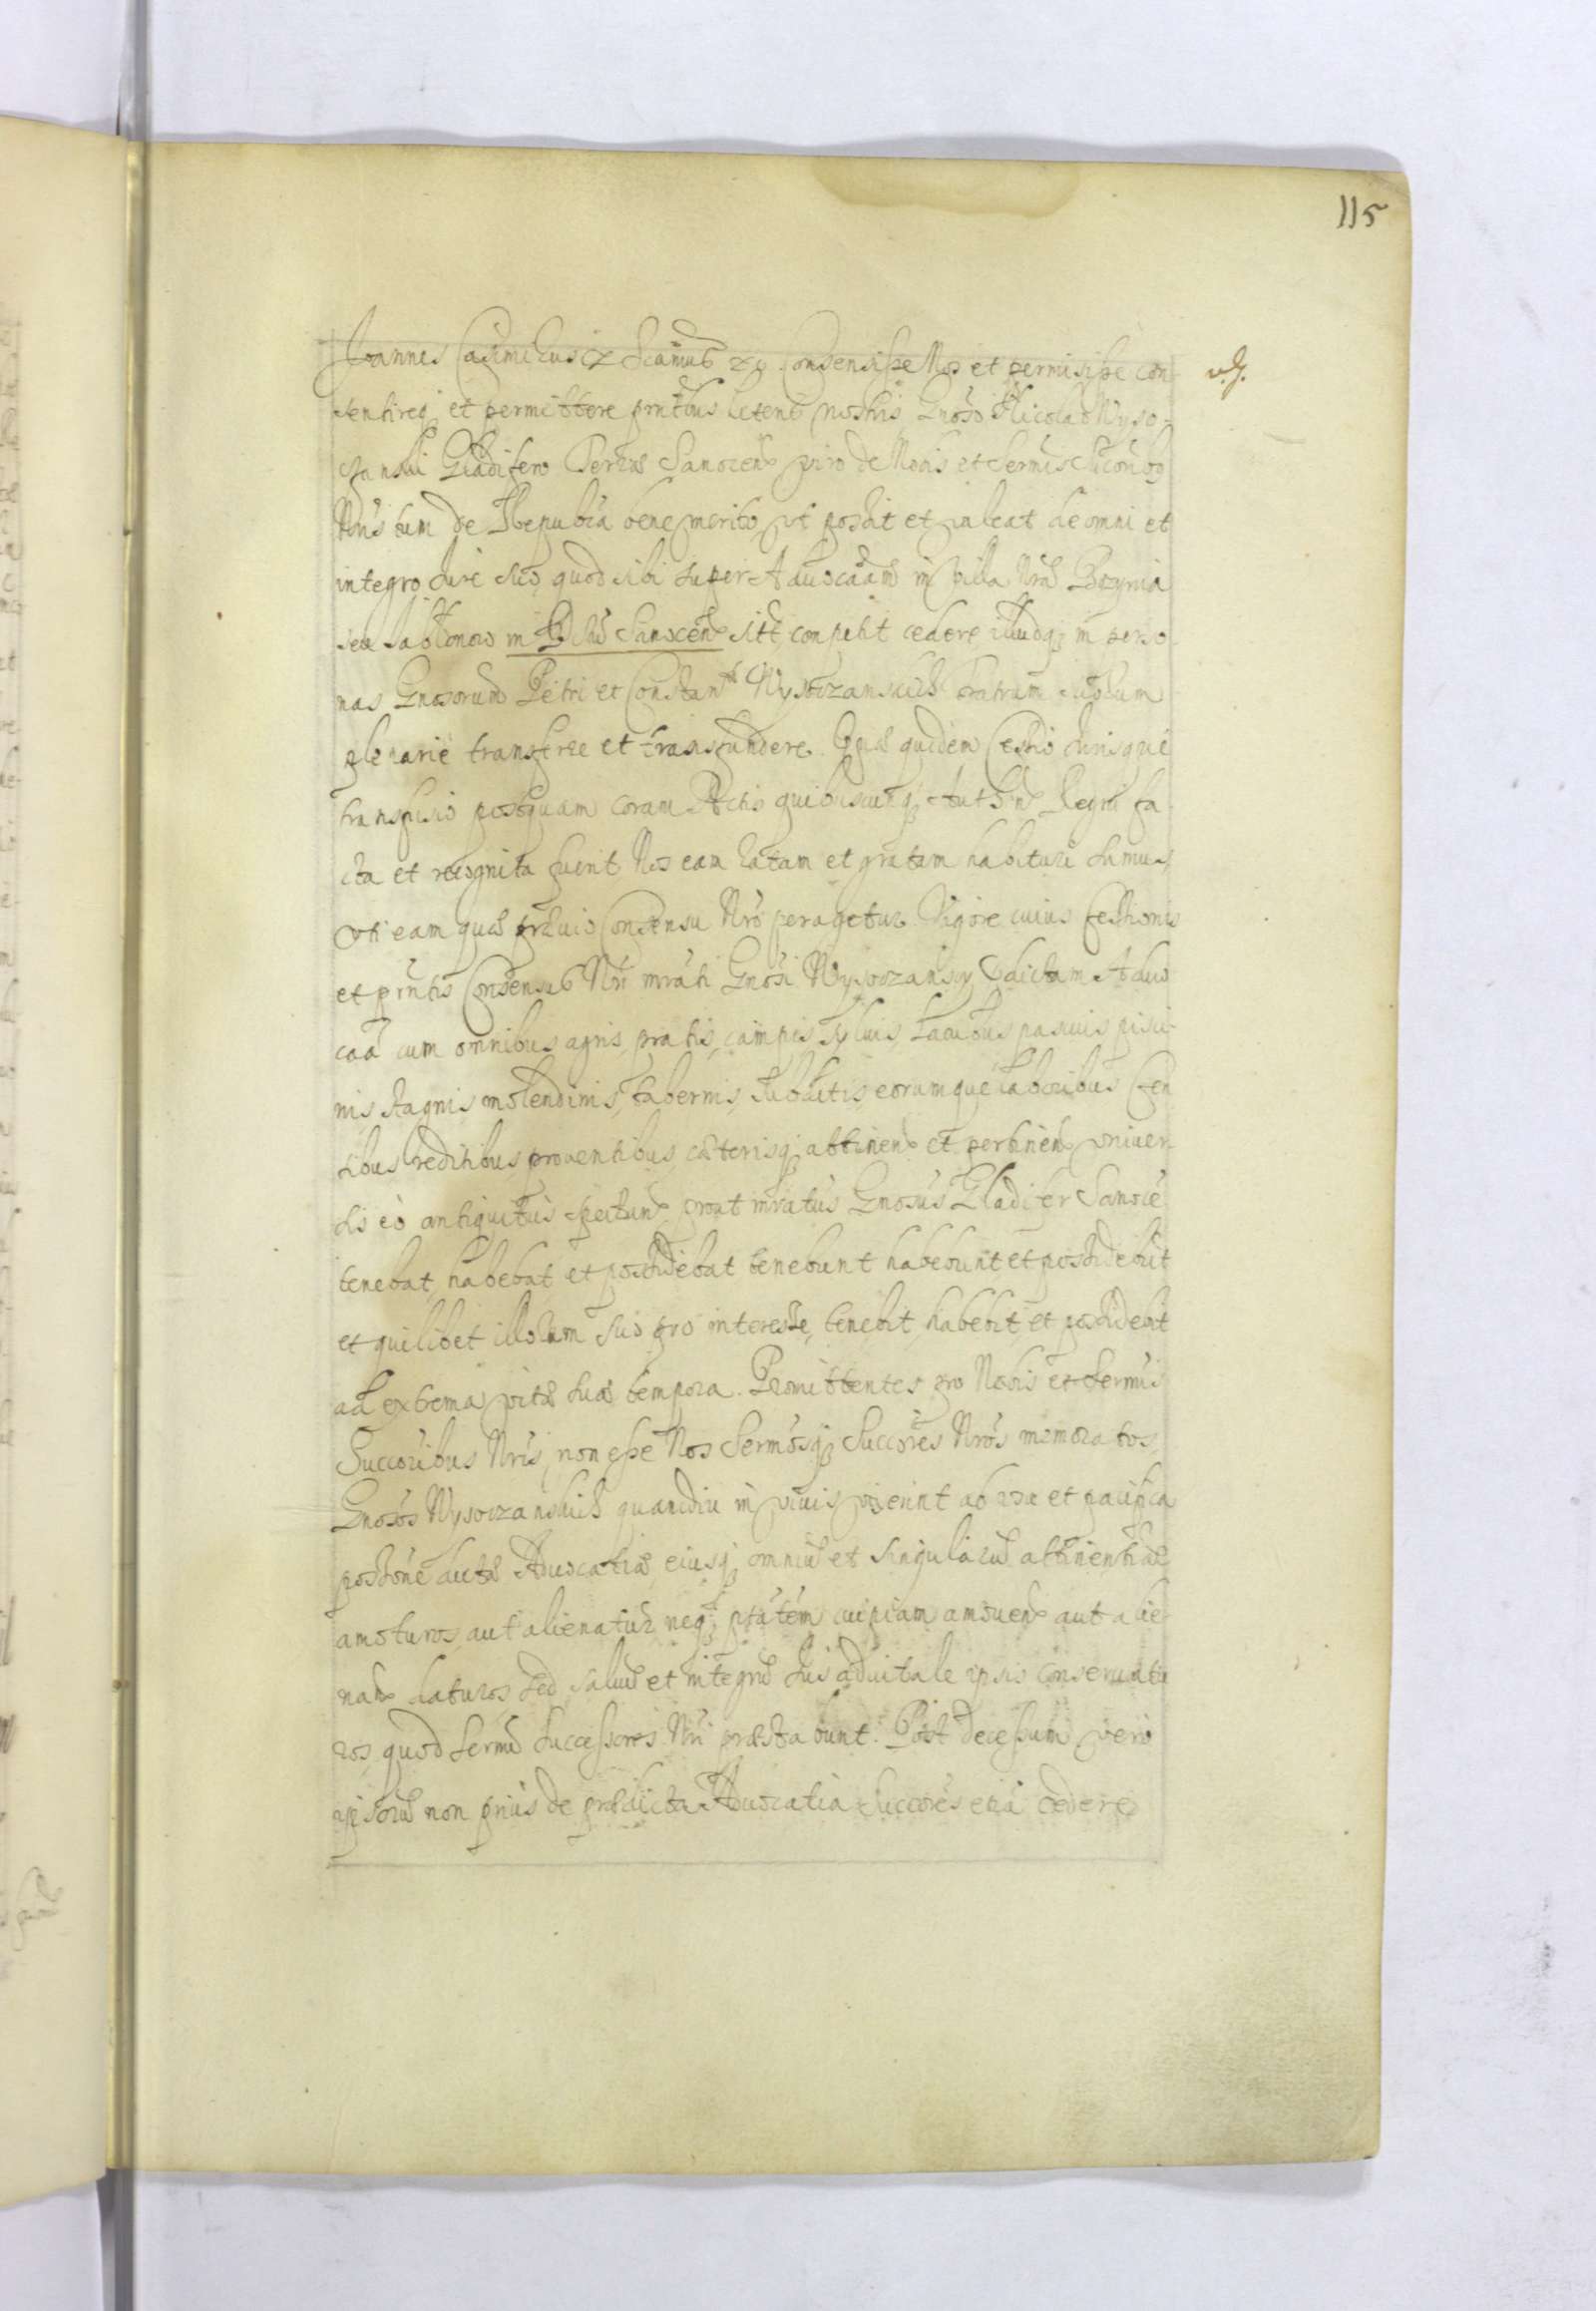 115
Joannes Casimirus etc Sicamus etc Consensisse Nos et permisisse con-
sentireq; et permittere pntibus literis nostris Gnoso Nicolao Wyso-
czanski Gladifero Terræ Sanocen viro de Nobis et Sermis
Nris tum de Repubca bene merito ut possit et valeat de omni et
integro Jure suo quod sibi super Aduocaam in villa Nra
seu in Sanocen sitt conpetit cedere illudq; in perso-
nas Gnosorum Petri et Constant Wysoczanskich fratrum
plenarie transferre et transfundere. Quæ quidem Cessio Jurisque
transfusio postquam coram Actis quibuscunq; Authen Regni fa-
cta et recognita fuerit Nos eam ratam et gratam habituri sumus,
uti eam quæ præuio Consensu Nro peragetur. Vigore cuius Cessionis
et pntis Consensus Nri mrati Gnosi Wysoczanscy dictam Aduo
caam cum omnibus agris, pratis, campis, syluis, lacubus pascuis pisci-
nis stagnis, molendinis, tabernis, subditis, eorumque laboribus Cen
sibus reditibus, prouentibus, cæterisq; attinen et pertinen vniuer-
sis eo antiquitus spectan prout mratus Gnosus Gladifer Sanoce
tenebat, habebat et possidebat tenebunt habebunt et possidebut
et quilibet illorum suo pro interesse, tenebit, habebit et possidebit
ad extrema vitæ suæ tempora. Promittentes pro Nobis et Sermis
Succoribus Nris, non esse Nos Sermosq; Succores Nros memoratos
Gnosos Wysoczanskich quamdiu in viuis vixerint ab vsu et pacifica
possone dictæ Aduocatiæ eiusq; omniu et singularu attinentiar
amoturos, aut alienatur neq; ptatem cuipiam amouen aut alie-
nan daturos, sed saluu et integru Jus aduitale ipsis conseruatu
ros, quod Sermi Successores Nri præstabunt. Post decessum vero
ipsoru non prius de prædicta Aduocatia Succores etia cedere